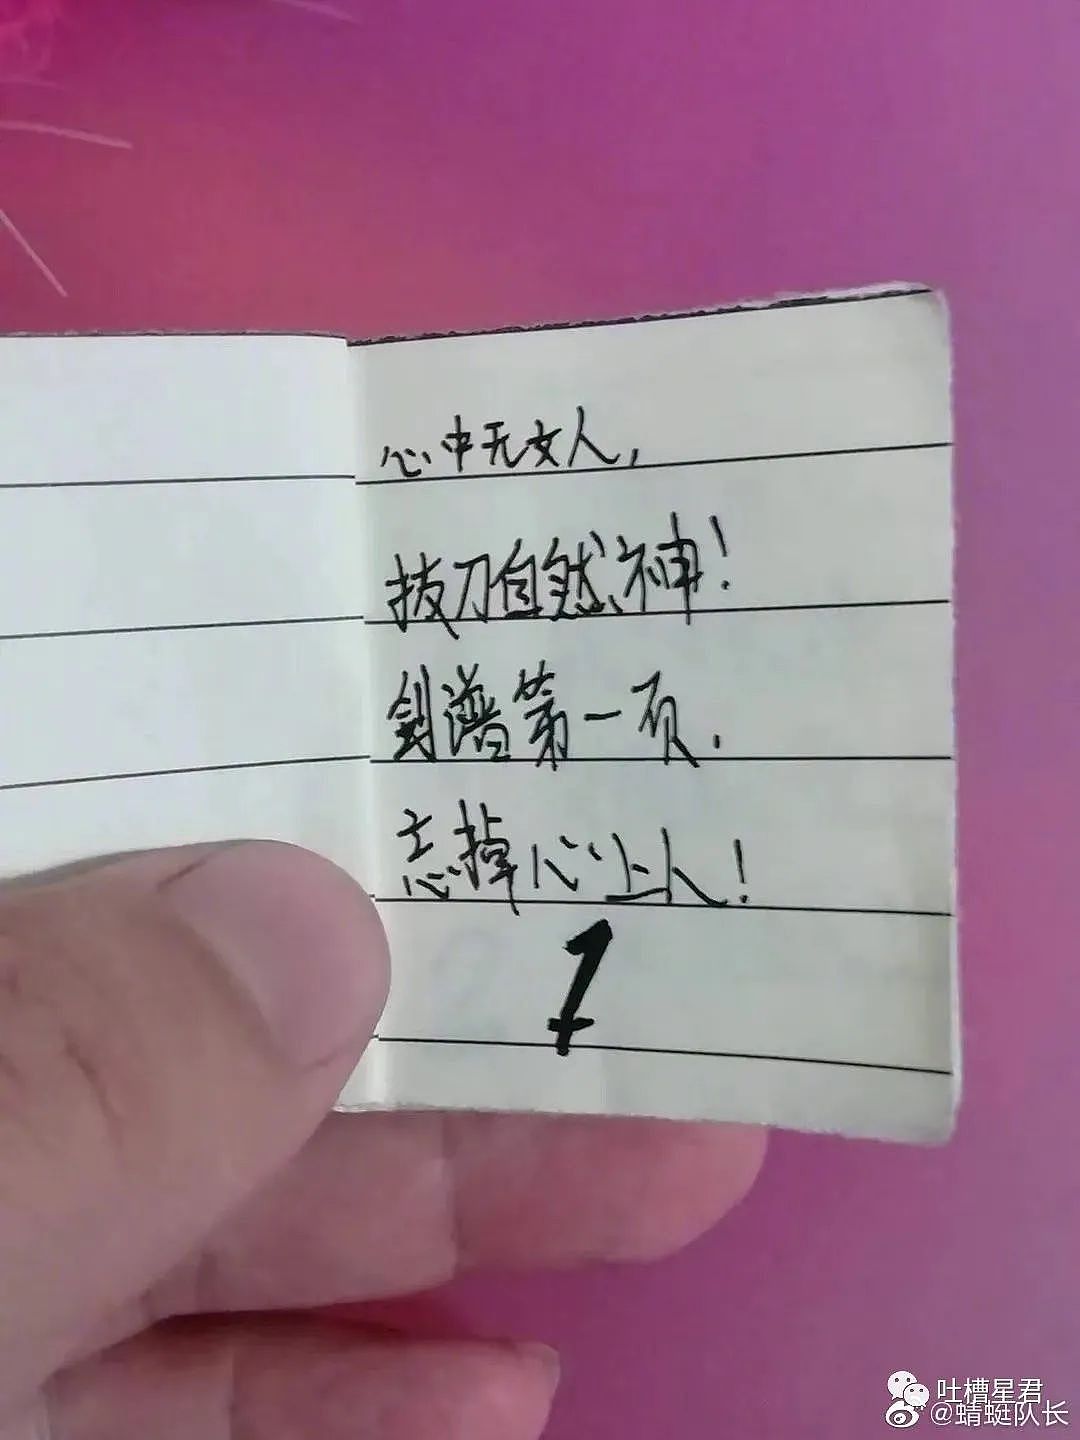 心中无女人，
拔刀自然神！
剑谱第一页.
忘掉心上人！
吐槽星君
@蜻蜓队长